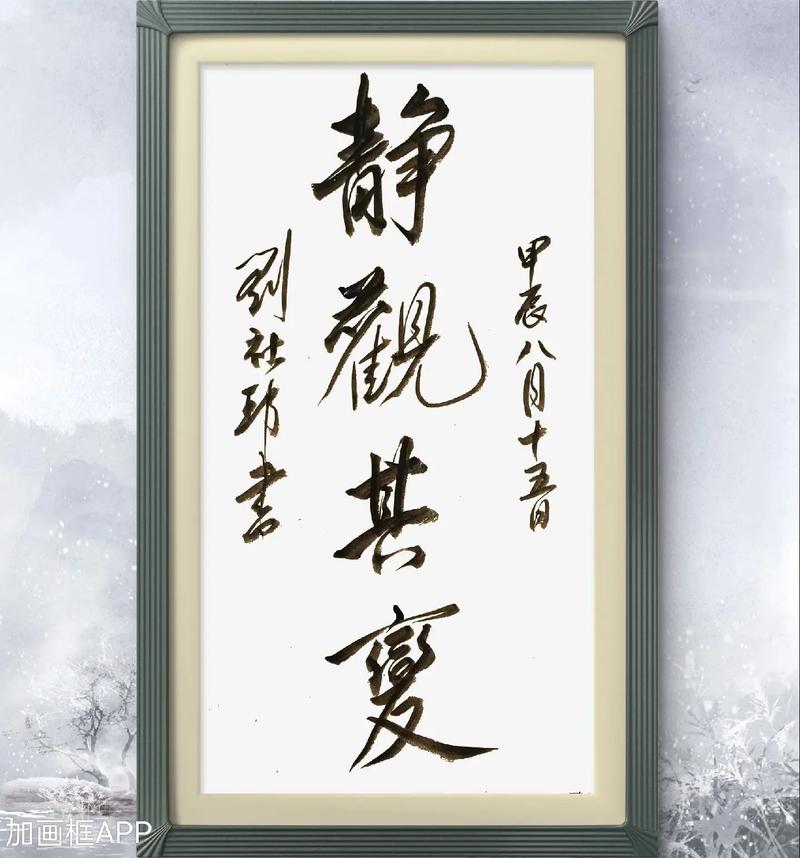 甲辰八月十五日
静觀其變
劉社書
加画框APP